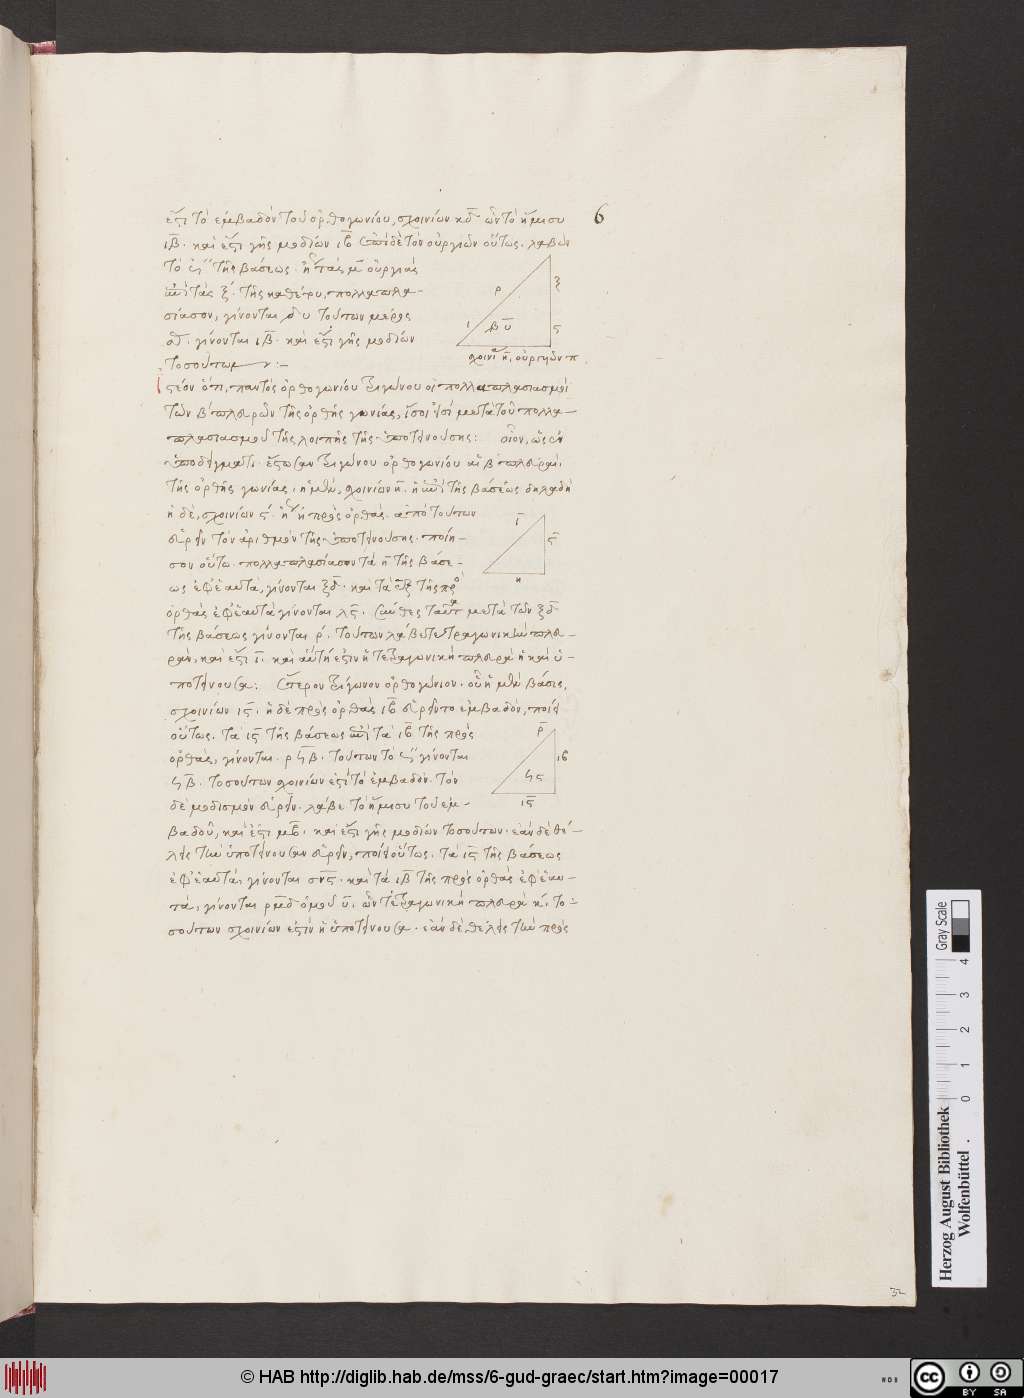 ἐστι τὸ ἐμβαδὸν τοῦ ὀρθογωνίου, σχοινίων κδ ὧν τὸ ἥμισυ
6
ιβ. καὶ ἔστι γῆς μοδίων ιβ ἐπὶ δὲ τῶν οὐργιῶν οὕτως. λαβὼν
τὸ 𐅶 τῆς βάσεως. ἤτοι τὰς μ οὐργιάς
ἐπὶ τὰς ξ. τῆς καθέτου, πολλαπλα-
σίασον, γίνονται ͵βυ τούτων μέρος
σ. γίνονται ιβ. καὶ ἔστι γῆς μοδίων
τοσούτων :-
ρ
ξ
ι
͵βυ
ς
σχοινία η, οὐργιῶν π
ἰστέον ὅτι, παντὸς ὀρθογωνίου τριγώνου οἱ πολλαπλασιασμοὶ
τῶν β πλευρῶν τῆς ὀρθῆς γωνίας, ἴσοι εἰσὶ μετὰ τοῦ πολλα-
πλασιασμοῦ τῆς λοιπῆς τῆς ὑποτεινούσης: οἷον, ὡς ἐν
ὑποδείγματι. ἔστωσαν τριγώνου ὀρθογωνίου αἱ β πλευραὶ
τῆς ὀρθῆς γωνίας. ἡ μὲν, σχοινίων η. ἡ ἐπὶ τῆς βάσεως δηλαδὴ
ἡ δὲ, σχοινίων ς. ἤτοι ἡ πρὸς ὀρθάς. ἀπὸ τούτων
εὑρεῖν τὸν ἀριθμὸν τῆς ὑποτεινούσης. ποίη-
σον οὕτω. πολλαπλασίασον τὰ η τῆς βάσε-
ως ἐφ' ἑαυτά, γίνονται ξδ. καὶ τὰ ς τῆς πρὸς
ι
ς
η
ὀρθὰς ἐφ' ἑαυτὰ γίνονται λς. σύνθες ταῦτα μετὰ τῶν ξδ
τῆς βάσεως γίνονται ρ. τούτων λάβε τετραγωνικὴν πλευ-
ράν, καὶ ἔστι ι. καὶ αὕτη ἐστιν ἡ τετραγωνικὴ πλευρὰ ἡ καὶ ὑ-
ποτείνουσα: ἕτερον τρίγωνον ὀρθογώνιον. οὗ ἡ μὲν βάσις,
σχοινίων ις. ἡ δὲ πρὸς ὀρθὰς ιβ εὑρεῖν τὸ ἐμβαδόν, ποίει
οὕτως. τὰ ις τῆς βάσεως ἐπὶ τὰ ιβ τῆς πρὸς
ὀρθάς, γίνονται ρϟβ. τούτων τὸ 𐅶 γίνονται
ϟβ. τοσούτων σχοινίων ἐστὶ τὸ ἐμβαδόν. τὸν
δὲ μοδισμὸν εὑρεῖν. λάβε τὸ ἥμισυ τοῦ ἐμ-
ρ
ιβ
ϟς
ις
βαδοῦ, καὶ ἔστι μβ. καὶ ἔστι γῆς μοδίων τοσούτων. ἐὰν δὲ θέ-
λῃς τὴν ὑποτείνουσαν εὑρεῖν, ποίει οὕτως. τὰ ις τῆς βάσεως
ἐφ' ἑαυτά, γίνονται σνς. καὶ τὰ ιβ τῆς πρὸς ὀρθὰς ἐφ' ἑαυ-
τά, γίνονται ρμδ ὁμοῦ υ. ὧν τετραγωνικὴ πλευρὰ κ. το-
σούτων σχοινίων ἐστὶν ἡ ὑποτείνουσα. ἐὰν δὲ θέλῃς τὴν πρὸς
Herzog August Bibliothek
Wolfenbüttel
Gray Scale
0 1 2 3 4
© HAB http://diglib.hab.de/mss/6-gud-graec/start.htm?image=00017
cc BY SA